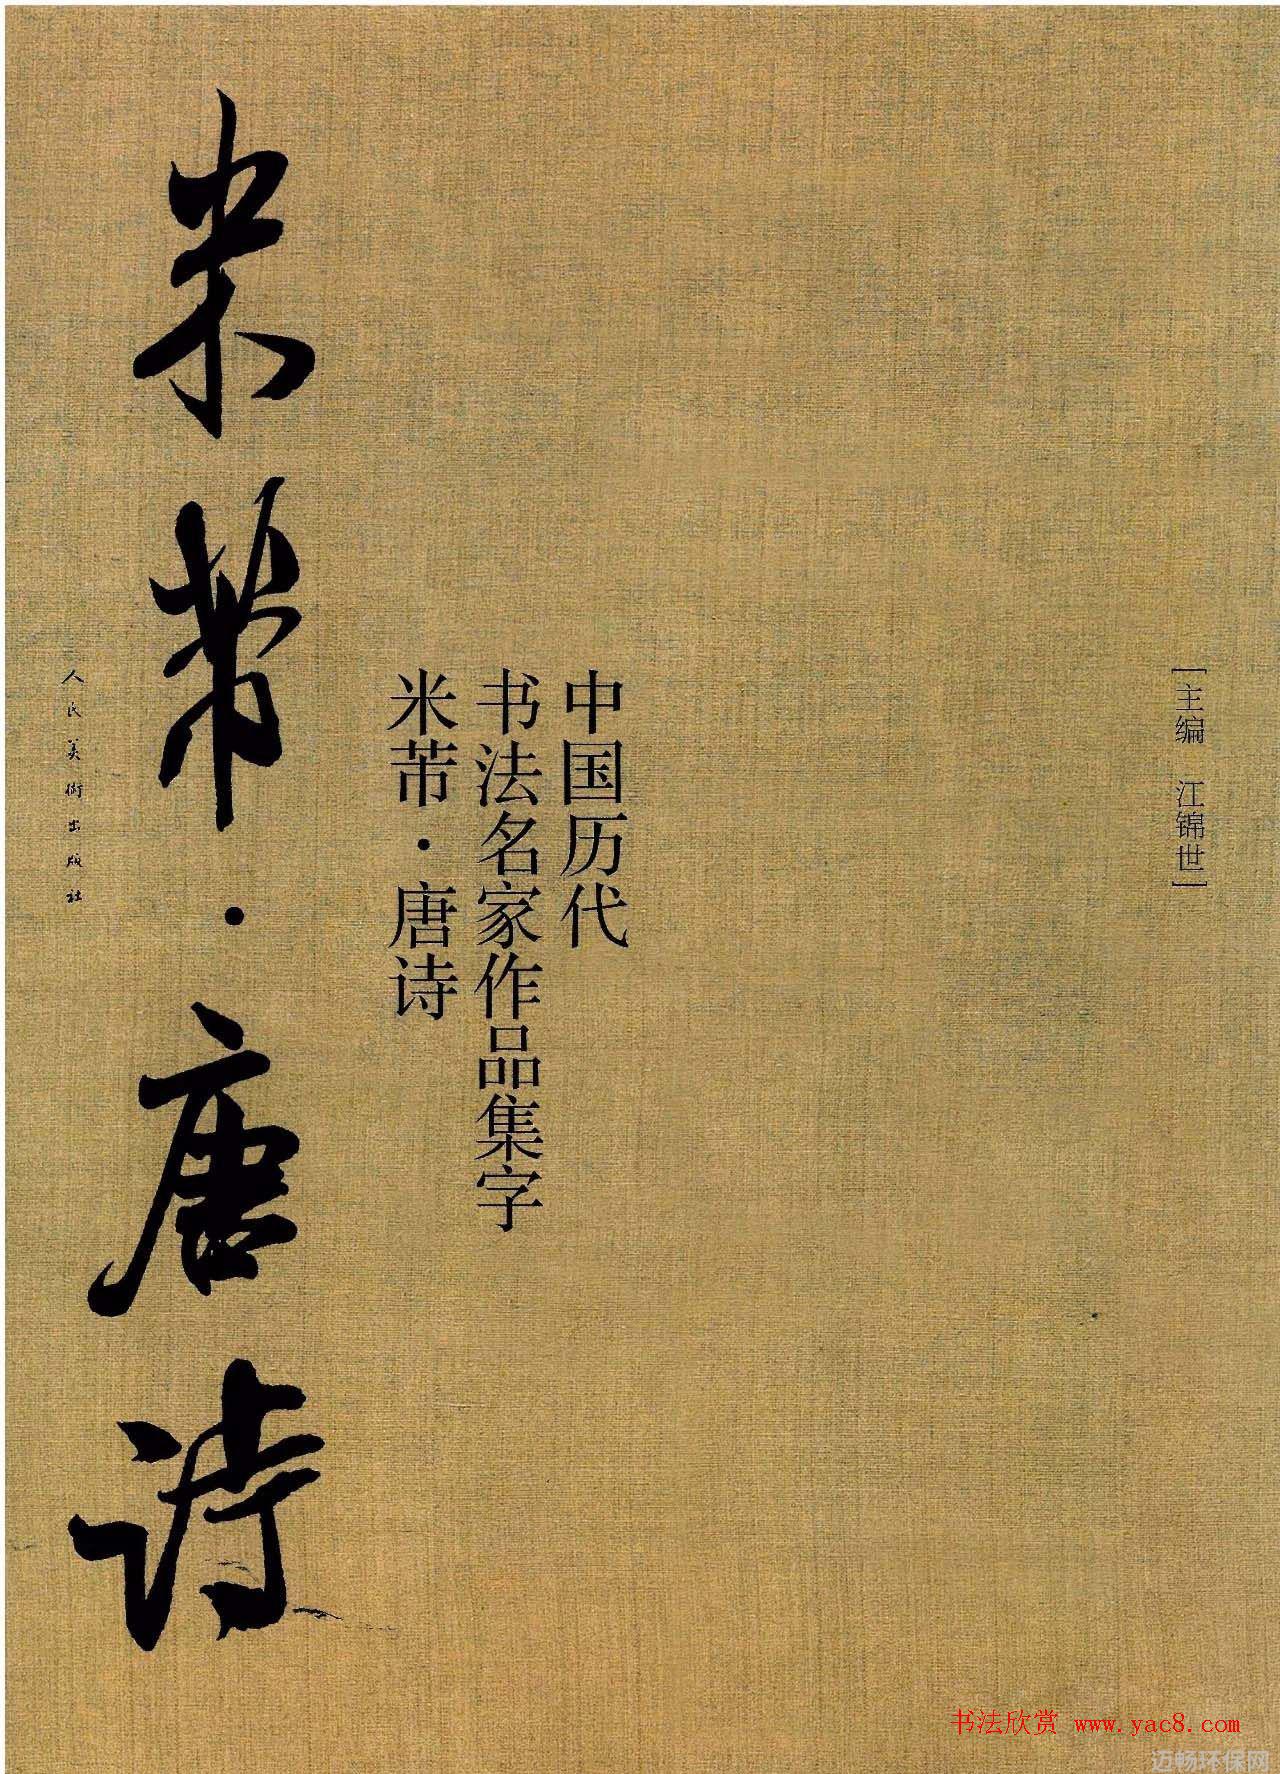 [主编 江锦世]
中国历代
书法名家作品集字
米芾·唐诗
米芾·唐诗
人民美术出版社
书法欣赏 www.yac8.com
迈畅环保网